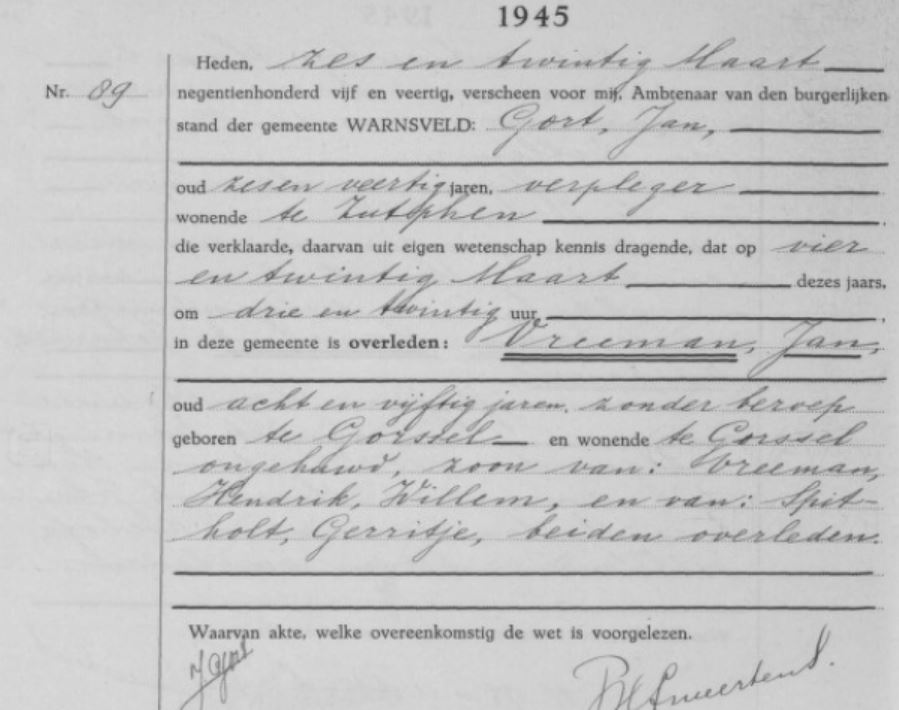 1945
Heden, zes en twintig Maart
Nr. 89 negentienhonderd vijf en veertig, verscheen voor mij, Ambtenaar van den burgerlijken
stand der gemeente WARNSVELD: Gort, Jan,
oud zes en veertig jaren, verpleger
wonende te Zutphen,
die verklaarde, daarvan uit eigen wetenschap kennis dragende, dat op vier
en twintig Maart dezes jaars,
om drie en twintig uur,
in deze gemeente is overleden: Vreeman, Jan,
oud acht en vijftig jaren, zonder beroep
geboren te Gorssel en wonende te Gorssel
ongehuwd, zoon van: Vreeman,
Hendrik, Willem, en van: Spit-
holt, Gerritje, beiden overleden.
Waarvan akte, welke overeenkomstig de wet is voorgelezen.
J Gort